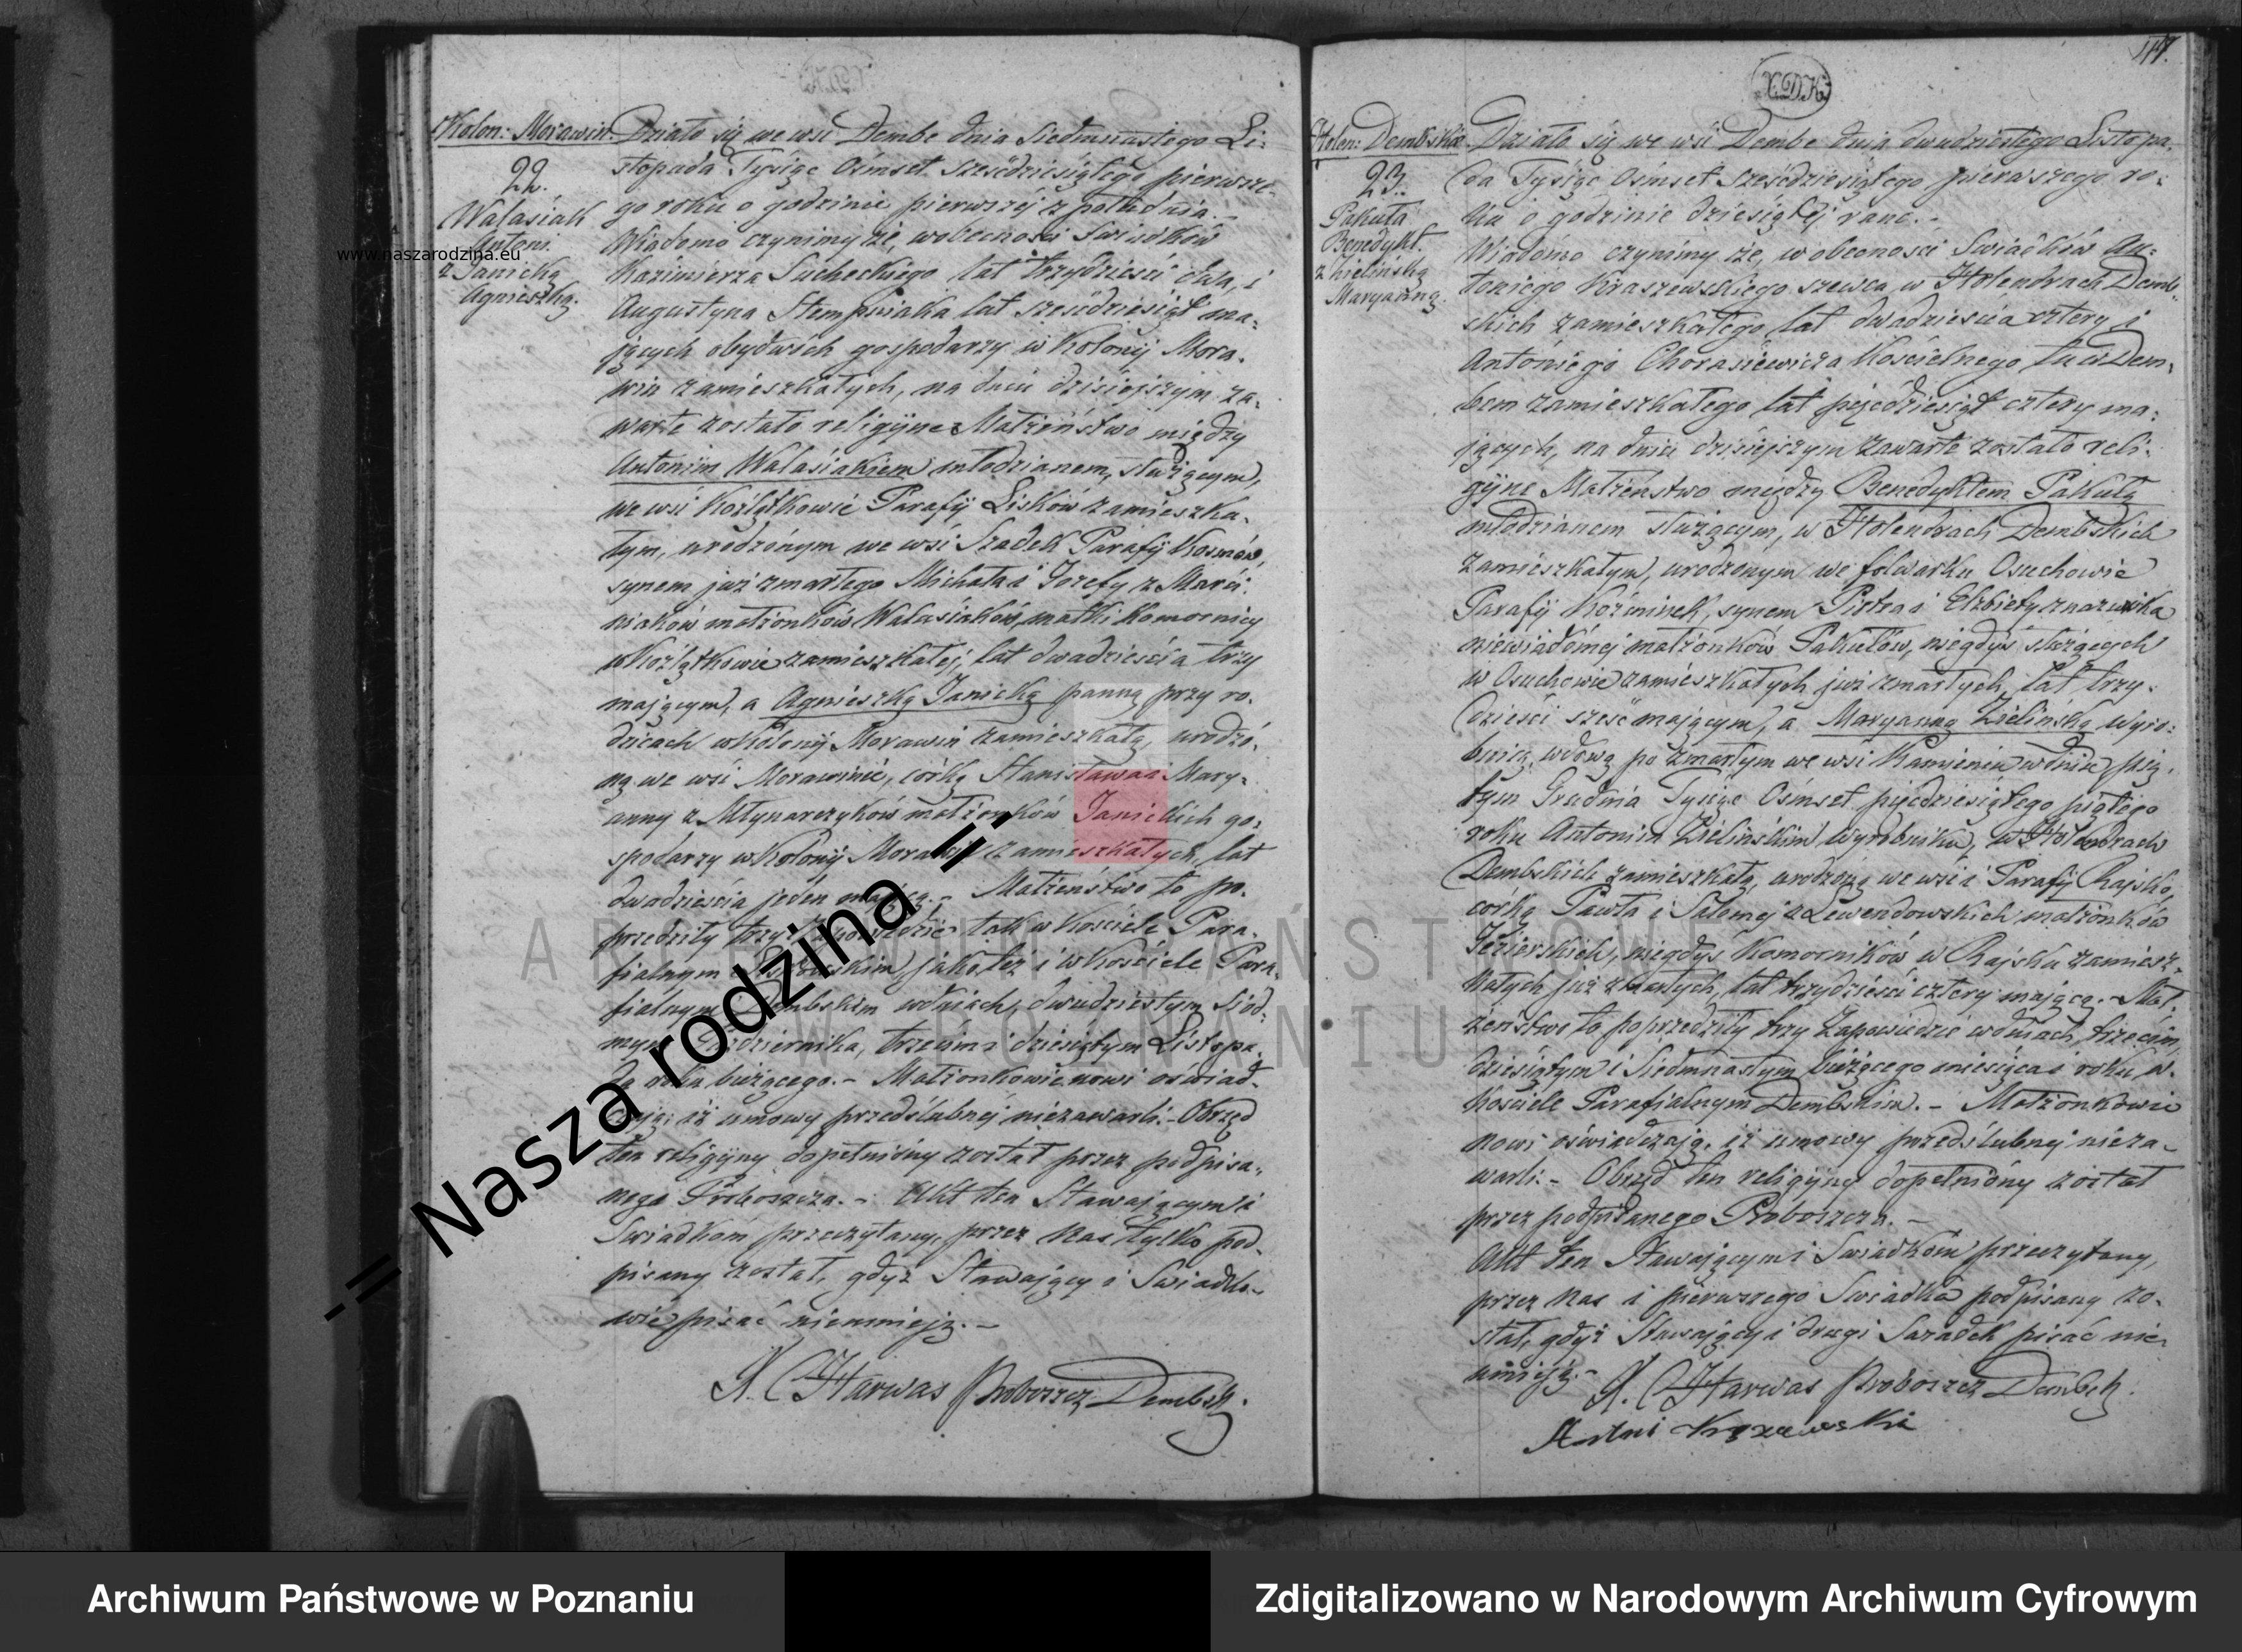 Kolon: Morawin.
22.
Walasiak
Antoni.
z Janicką
Agnieszką.
Działo się we wsi Dembe dnia Siedmnastego Li-
stopada Tysiąc Ośmset Sześćdziesiątego pierwsze-
go roku o godzinie pierwszéj z południa.-
Wiadomo czynimy że, wobecności Swiadków
Kazimierza Sucheckiego lat trzydzieści dwa, i
Augustyna Stempniaka lat sześćdziesiąt ma-
jących obydwóch gospodarzy w Kolonij Mora-
win zamieszkałych, na dniu dzisiejszym za-
warte zostało religijne Małżeństwo między
Antonim Walasiakiem młodzianem, służącym,
we wsi Koźlątkowie Parafij Lisków zamieszka-
łym, urodzonym we wsi Szadek Parafij Kosmów,
synem już zmarłego Michała i Józefy z Marci-
niaków małżonków Walasiaków, matki komornicy
w Koźlątkowie zamieszkałej, lat dwadzieścia trzy
mającym, a Agnieszką Janicką panną przy ro-
dzicach w Kolonij Morawin zamieszkałą, urodzo-
ną we wsi Morawinie, córką Stanisława i Mary-
anny z Młynarczyków małżonków Janickich go-
spodarzy w Kolonij Morawin zamieszkałych, lat
dwadzieścia jeden mającą.- Małżeństwo to po-
przedziły trzy Zapowiedzie tak w Kościele Para-
fialnym jako też i w Kościele Para-
fialnym Dembskim w dniach, dwudziestym Siód-
mym Października, trzecim i dziesiątym Listopa-
da roku bieżącego.- Małżonkowie nowi oświad-
czają, iż umowy przedślubnéj niezawarli.- Obrzęd
ten religijny dopełniony został przez podpisa-
nego Proboszcza.- Akt ten Stawającym i
Swiadkom przeczytany, przez Nas tylko pod-
pisany został, gdyż Stawający i Swiadko-
wie pisać nieumieją.-
X. Harwas Proboszcz Dembsk.
117.
X.D.K.
Holen: Dembskie
23.
Pakuła
Benedykt.
z Zielińską
Maryanną.
Działo się we wsi Dembe dnia dwudziestego Listopa-
da Tysiąc Ośmset Sześćdziesiątego pierwszego ro-
ku o godzinie dziesiątéj rano.-
Wiadomo czynimy że, w obecności Swiadków An-
toniego Kraszewskiego szewca, w Holendrach Demb-
skich zamieszkałego lat dwadzieścia cztery, i
Antoniego Chorasiewicza Kościelnego tu w Dem-
bem zamieszkałego lat pięćdziesiąt cztery ma-
jących, na dniu dzisiejszym zawarte zostało reli-
gijne Małżeństwo między Benedyktem Pakułą
młodzianem służącym, w Holendrach Dembskich
zamieszkałym, urodzonym we folwarku Osuchowie
Parafij Koźminek, synem Piotra i Elżbiety z nazwiska
niewiadoméj małżonków Pakułów, niegdyś służących
w Osuchowie zamieszkałych już zmarłych, lat trzy-
dzieści sześć mającym, a Maryanną Zielińską wyro-
bnicą, wdową po zmarłym we wsi Kamieniu w dniu pią-
tym Grudnia Tysiąc Ośmset pięćdziesiątego piątego
roku Antonim Zielińskim wyrobniku, w Holendrach
Dembskich zamieszkałą, urodzoną we wsi i Parafij Rajsko,
córką Pawła i Salomej z Lewendowskich małżonków
Jezierskich, niegdyś komorników w Rajsku zamiesz-
kałych już zmarłych, lat trzydzieści cztery mającą.- Mał-
żeństwo to poprzedziły trzy Zapowiedzie w dniach, trzecim,
dziesiątym i Siedmnastym bieżącego miesiąca i roku w
Kościele Parafialnym Dembskim.- Małżonkowie
nowi oświadczają, iż umowy przedślubnéj nieza-
warli.- Obrzęd ten religijny dopełniony został
przez podpisanego Proboszcza.-
Akt ten Stawającym i Swiadkom przeczytany,
przez Nas i pierwszego Swiadka podpisany zo-
stał, gdyż Stawający i drugi Swiadek pisać nie
umieją.-
X. Harwas Proboszcz Dembsk.
Antoni
www.naszarodzina.eu
-= Nasza rodzina =-
ARCHIWUM PAŃSTWOWE
W POZNANIU
Archiwum Państwowe w Poznaniu
Zdigitalizowano w Narodowym Archiwum Cyfrowym